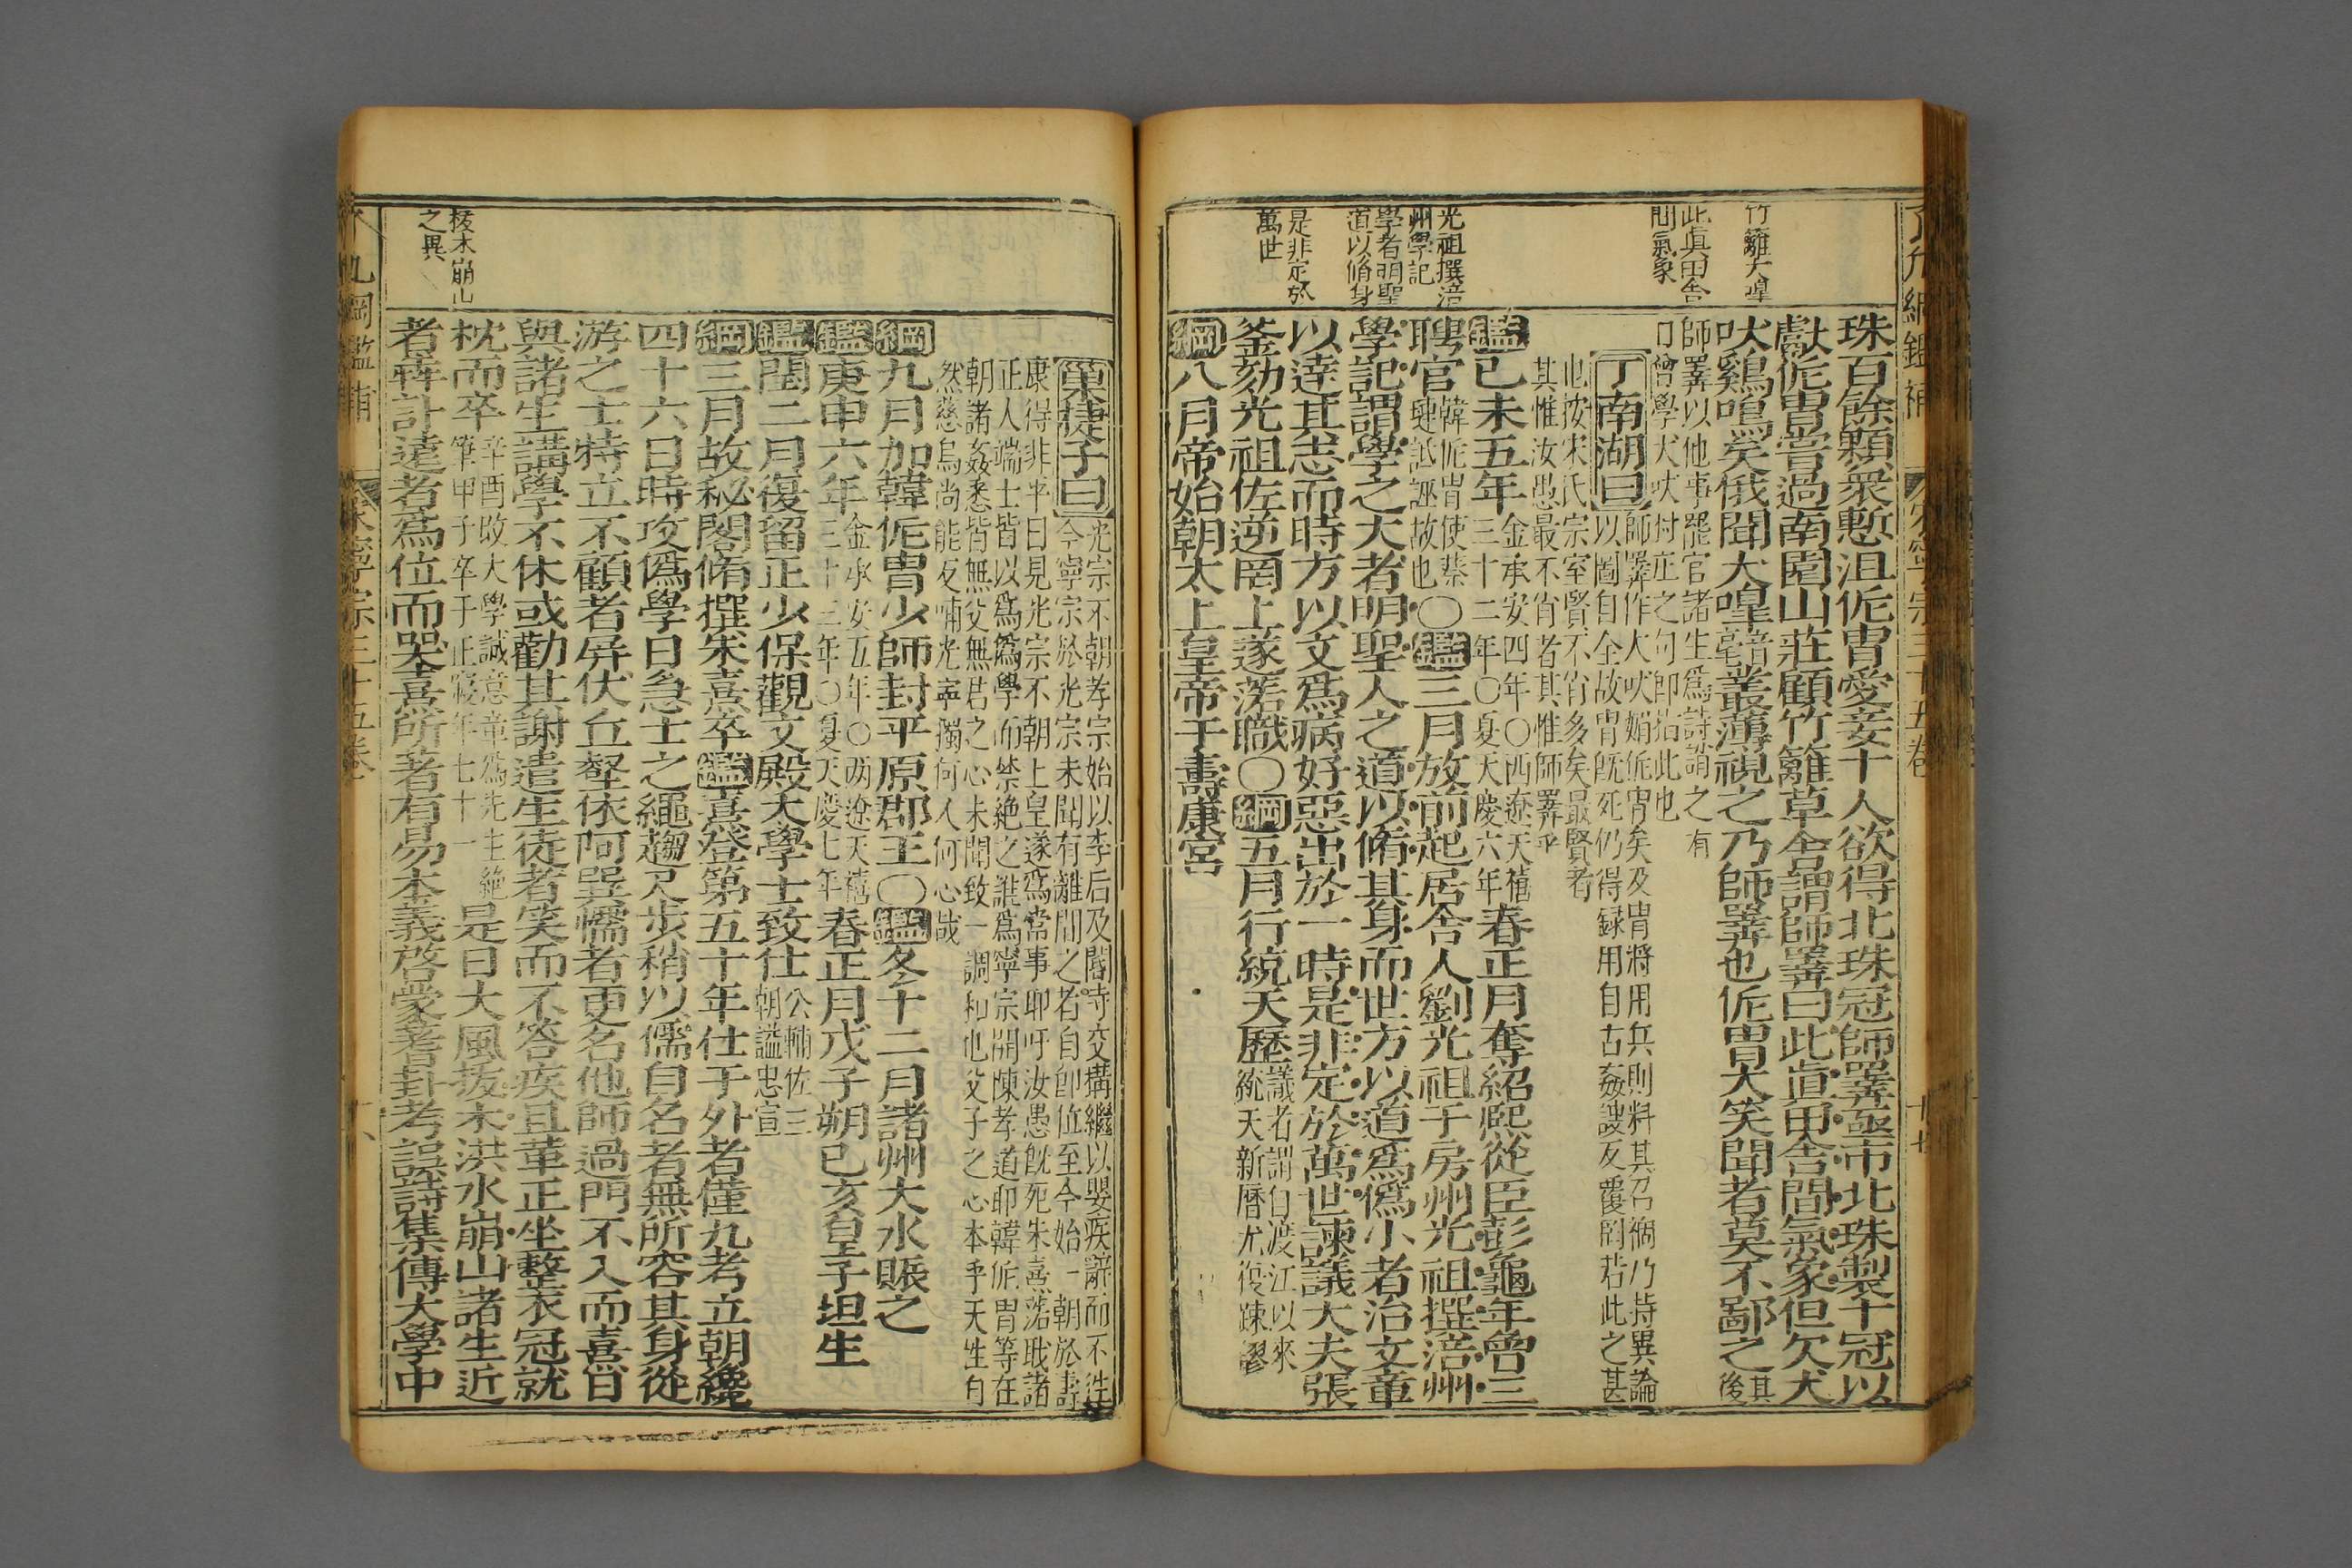 竹籬犬嘷
此眞田舍
間氣象
光祖撰涪
州學記
學者明聖
道以脩身
是非定於
萬世
珠百餘顆衆慙沮侂冑愛妾十人欲得北珠冠師𢍰亟市北珠製十冠以
獻侂冑嘗過南園山莊顧竹籬草舍謂師𢍰曰此眞田舍間氣象但欠犬
吠鷄鳴矣俄聞犬嘷叢薄視之乃師𢍰也侂冑大笑聞者莫不鄙之其後
師𢍰以他事罷官諸生爲詩誚之有
曾學犬吠村庄之句卽指此也
丁南湖曰師𢍰作犬吠媚侂冑矣及冑將用兵則料其召禍乃持異論
以圖自全故冑旣死仍得録用自古姦諛反覆罔若此之甚
也按宋氏宗室賢不肖多矣最賢者
其惟汝愚最不肖者其惟師𢍰乎
鑑己未五年金承安四年〇西遼天禧
三十二年〇夏天慶六年春正月奪紹熙從臣彭龜年曾三
聘官韓侂冑使蔡
璉詆誣故也〇鑑三月放前起居舍人劉光祖于房州光祖撰涪州
學記謂學之大者明聖人之道以脩其身而世方以道爲僞小者治文章
以達其志而時方以文爲病好惡出於一時是非定於萬世諫議大夫張
釜劾光祖佐逆罔上遂落職〇綱五月行統天歷議者謂自渡江以來
統天新曆尤復踈謬
綱八月帝始朝太上皇帝于壽康宮
了凡綱鑑補
宋寧宗三十五卷
十七
栗捷子曰光宗不朝孝宗始以李后及閹寺交構繼以嬰疾辭而不往
今寧宗於光宗未聞有離間之者自卽位至今始一朝於壽
康得非平日見光宗不朝上皇遂爲常事耶吁汝愚旣死朱熹落職諸
正人端士皆以爲僞學而禁絶之誰爲寧宗開陳孝道耶韓侂冑等在
朝諸姦悉皆無父無君之心未聞致一調和也父子之心本乎天性旬
然慈烏尚能反哺光寧獨何人何心哉
綱九月加韓侂冑少師封平原郡王〇鑑冬十二月諸州大水賑之
鑑庚申六年金承安五年〇西遼天禧
三十三年〇夏天慶七年春正月戊子朔己亥皇子坦生
鑑閏二月復留正少保觀文殿大學士致仕公輔佐三
朝謚忠宣
綱三月故秘閣脩撰朱熹卒鑑熹登第五十年仕于外者僅九考立朝纔
四十六日時攻僞學日急士之繩趨尺步稍以儒自名者無所容其身從
游之士特立不顧者屏伏丘壑依阿巽懦者更名他師過門不入而熹日
與諸生講學不休或勸其謝遣生徒者笑而不答疾且革正坐整衣冠就
枕而卒辛酉改大學誠意章爲先生絶
筆甲子卒于正寢年七十一是日大風拔木洪水崩山諸生近
者奔訃遠者爲位而哭熹所著有易本義啓蒙蓍卦考誤詩集傳大學中
拔木崩山
之異
凡綱鑑補
宋寧宗三十五卷